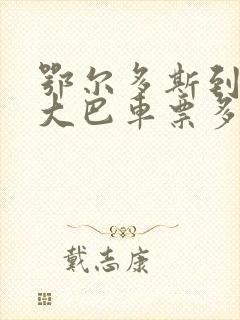 鄂尔多斯到
大巴车票多
戴志康